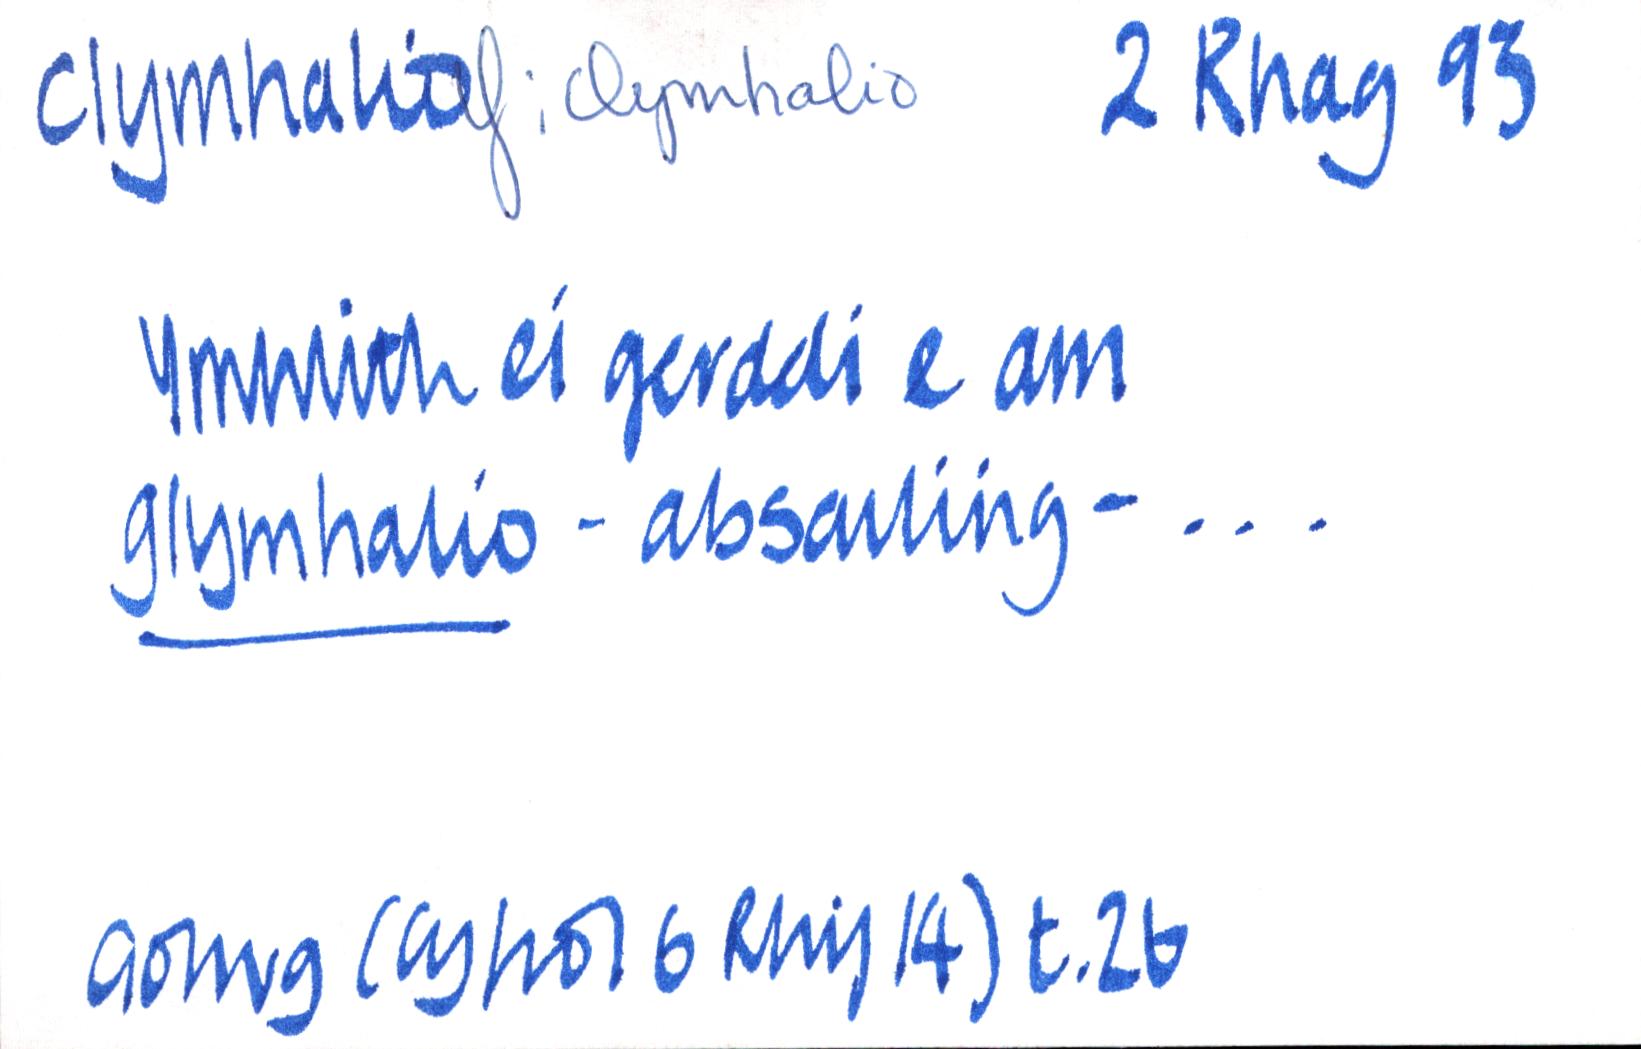 clymhaliof: clymhalio 2 Rhag 93
Ymhlith ei gerddi e am
glymhalio - absailing - ....
Golwg (Cyfrol 6 Rhif 14) t.26